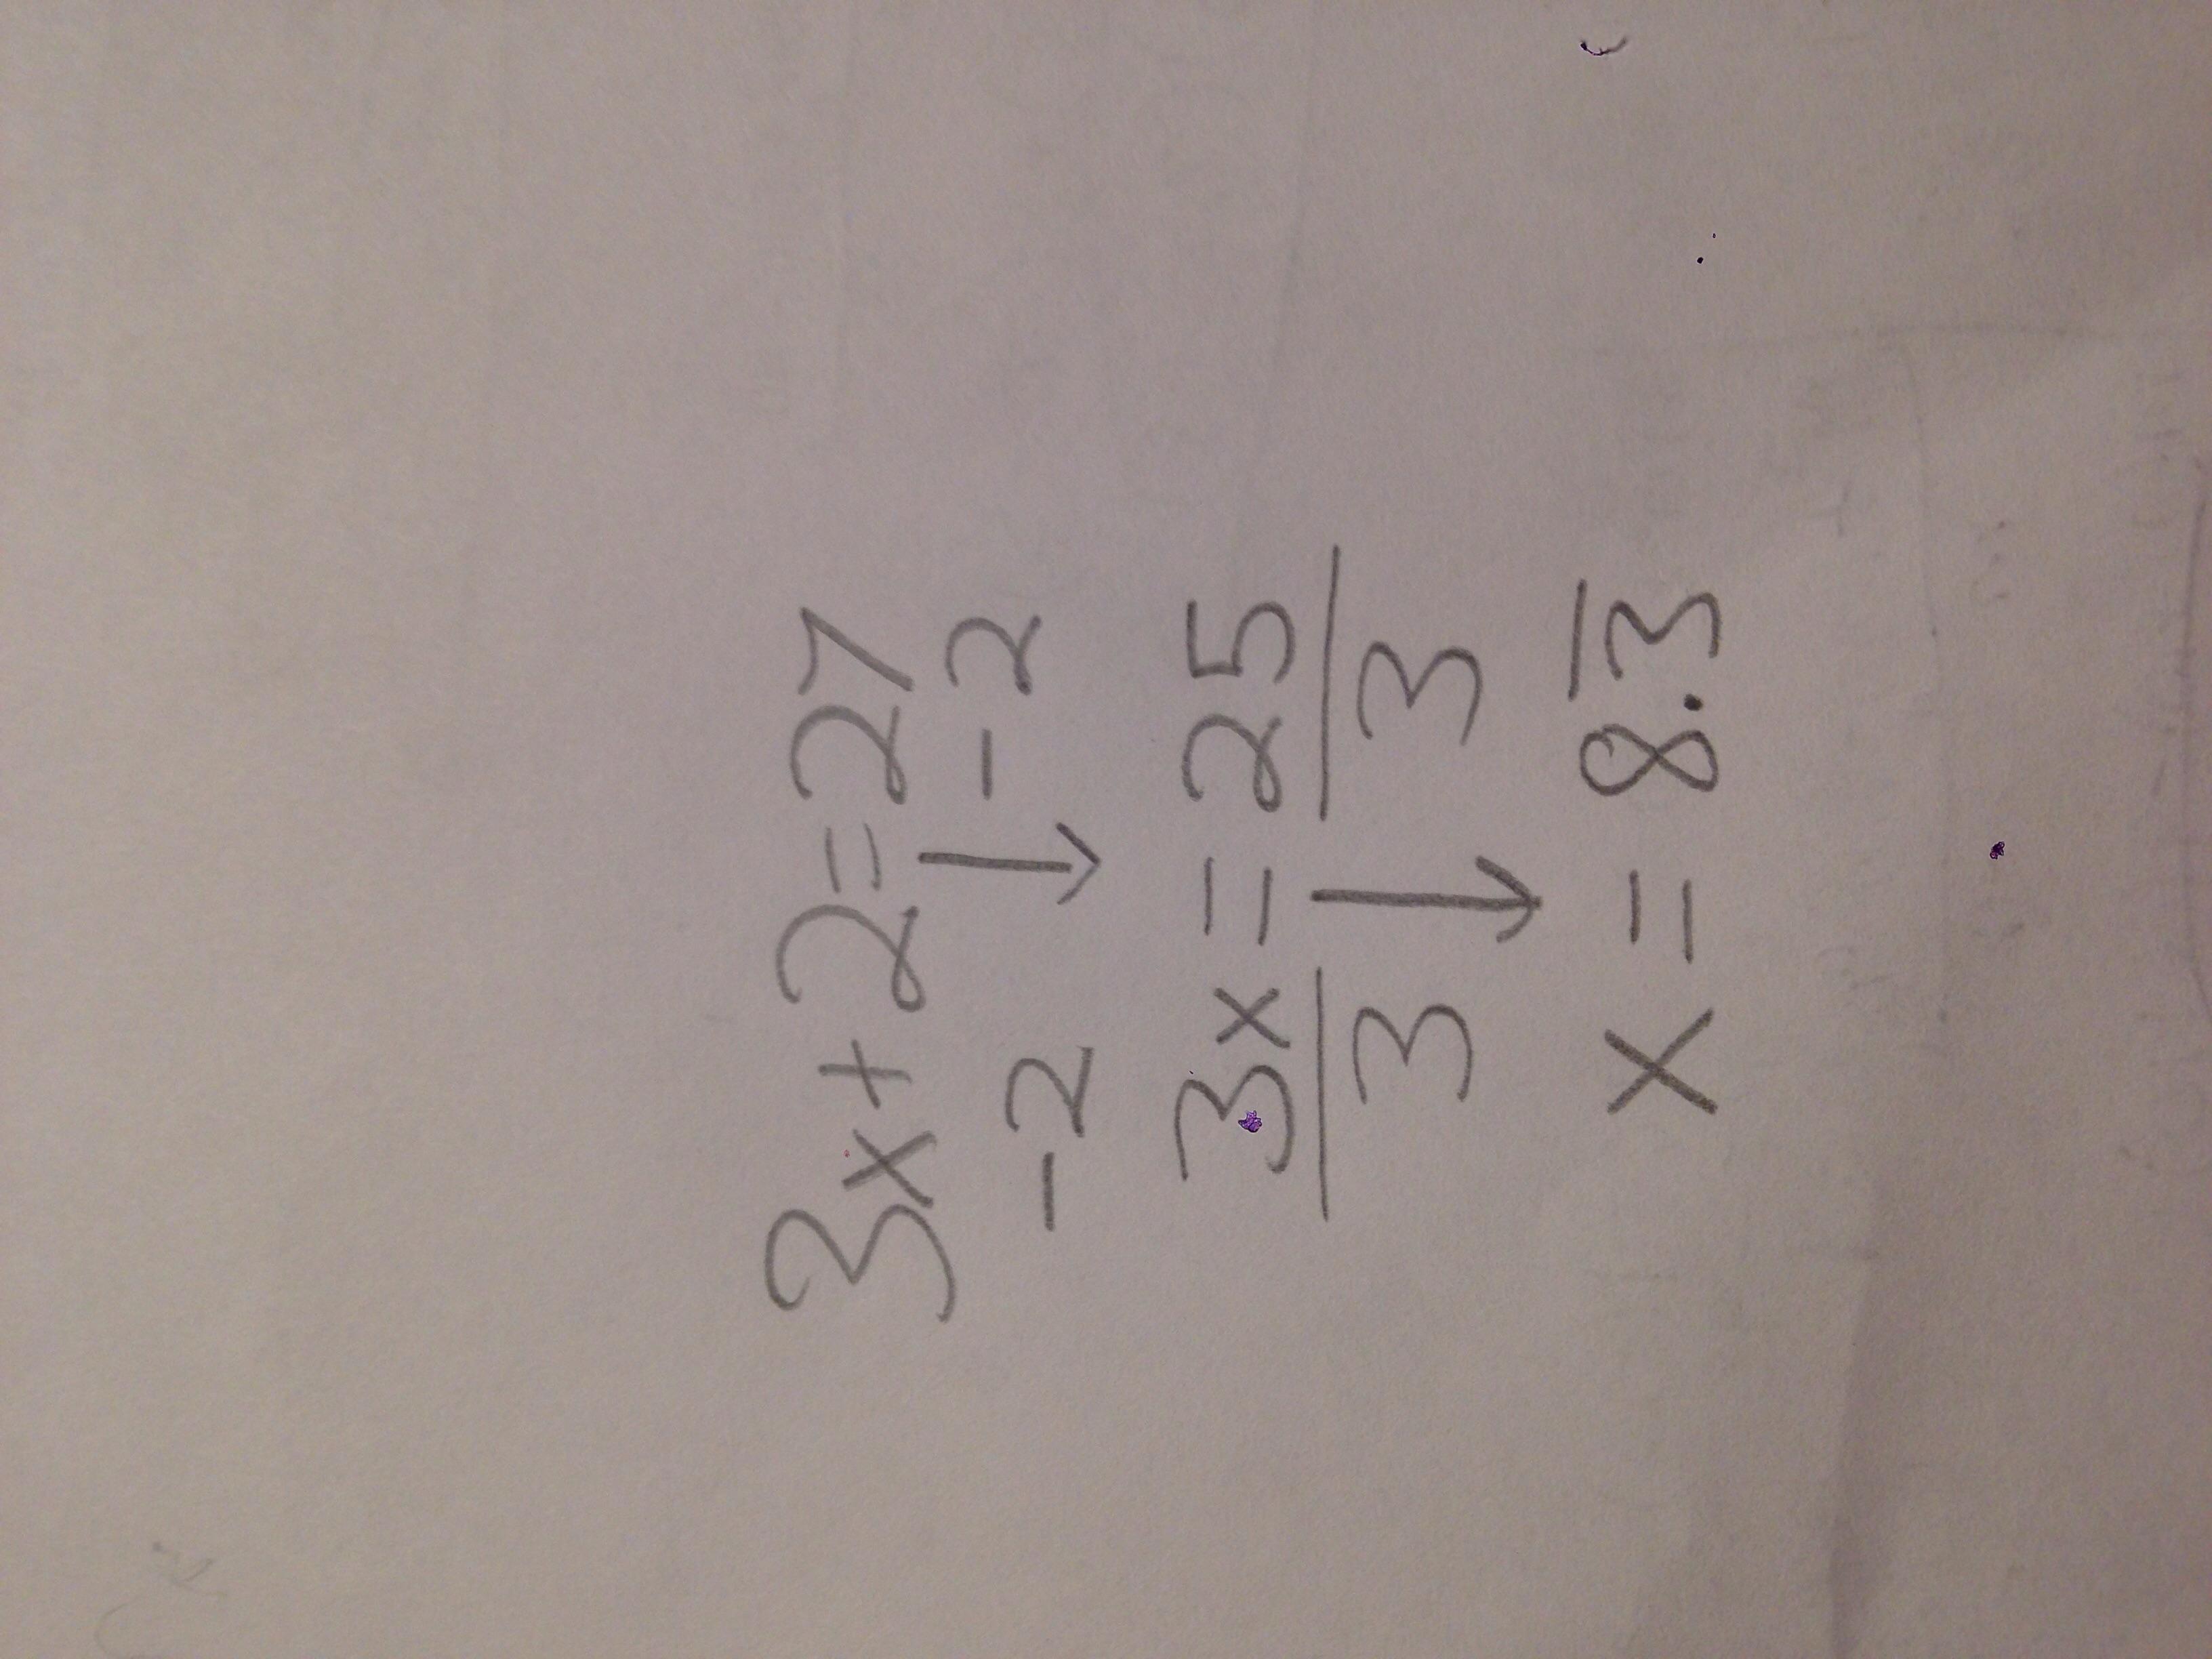 3x + 2 = 27
-2 ↓ -2
3x = 25
3 ↓ 3
x = 8.3̅